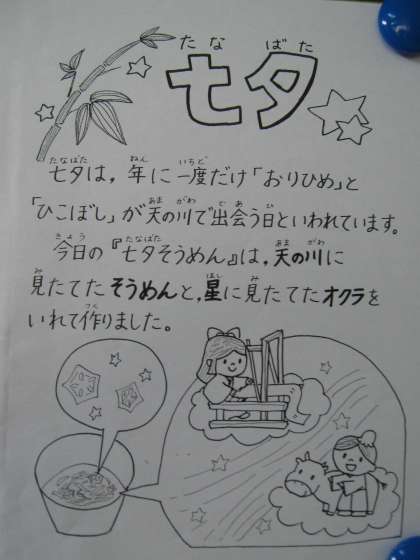 たなばた
七夕
七夕は，年に一度だけ「おりひめ」と
「ひこぼし」が天の川で出会う日といわれています。
今日の『七夕そうめん』は，天の川に
見たてたそうめんと，星に見たてたオクラを
いれて作りました。